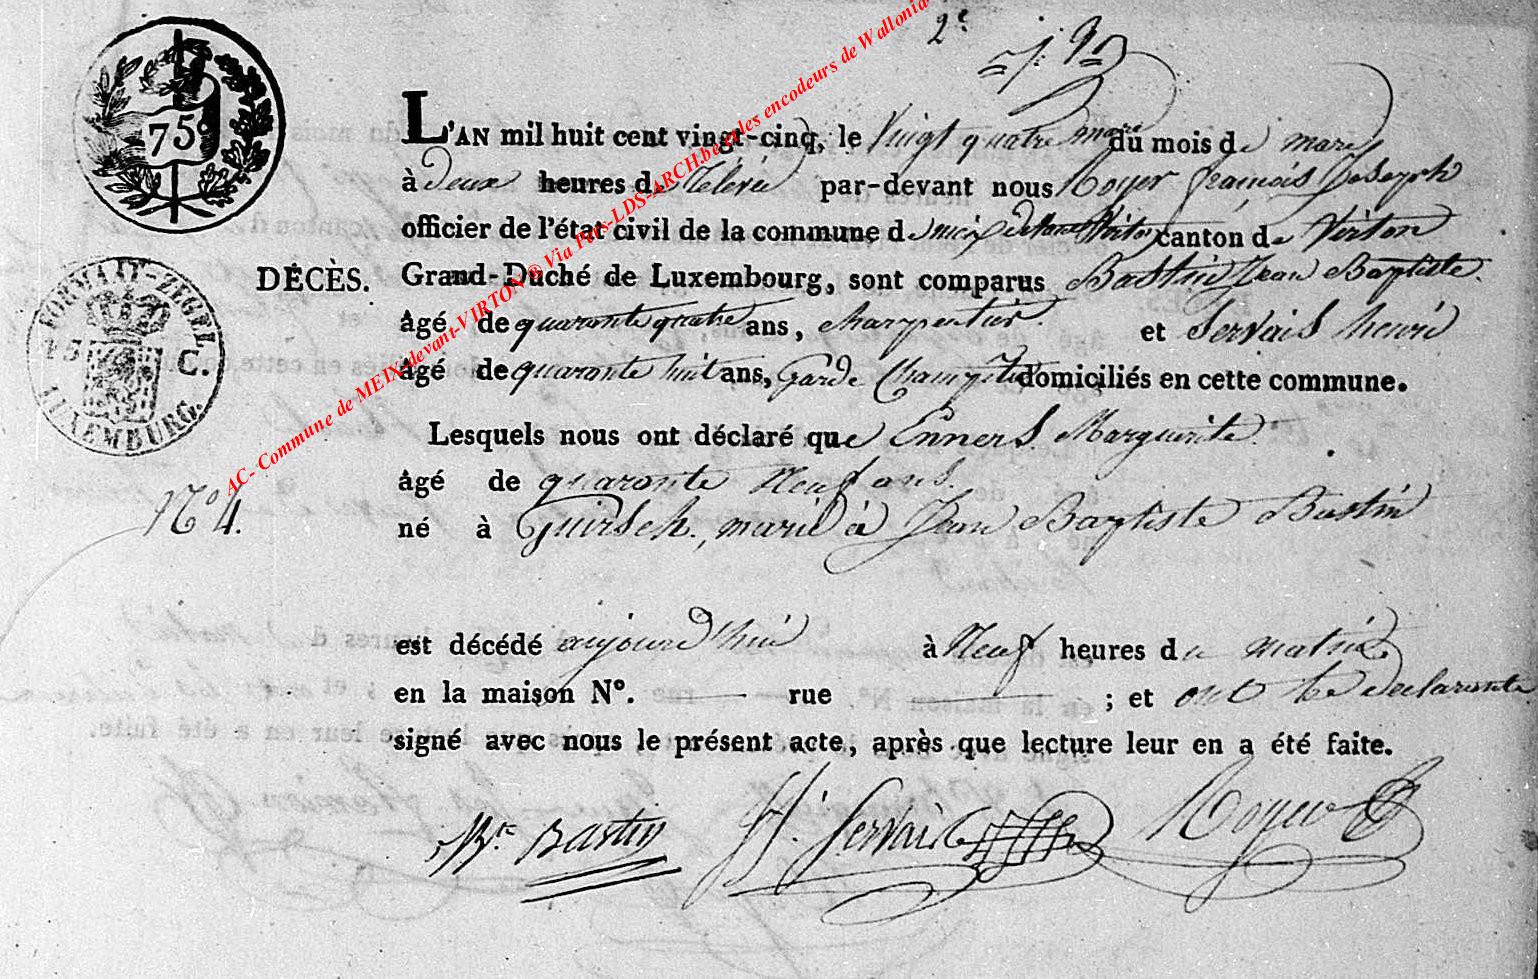 2e
75c
L'AN mil huit cent vingt-cinq, le Vingt quatre mars du mois de mars
à deux heures de relevée par-devant nous Royer françois Joseph
officier de l'état civil de la commune de meix devant Virton canton de Virton
DÉCÈS. Grand-Duché de Luxembourg, sont comparus Bastin Jean Baptiste
âgé de quarante quatre ans, charpentier et Servais henri
âgé de quarante huit ans, Garde Champetre domiciliés en cette commune.
FORMAAT-ZEGEL
C.
LUXEMBURG.
Lesquels nous ont déclaré que Enners Marguerite
âgé de quarante Neuf ans.
No 4.
né à Guirsch, marié à Jean Baptiste Bastin
est décédé aujourd'hui à Neuf heures du matin
en la maison N°. rue ; et ont le declarants
signé avec nous le présent acte, après que lecture leur en a été faite.
Bte Bastin H. Servais Royer
AC- Commune de MEIX-devant-VIRTON ® Via Pals-LDS-ARCH.be et les encodeurs de Wallonia